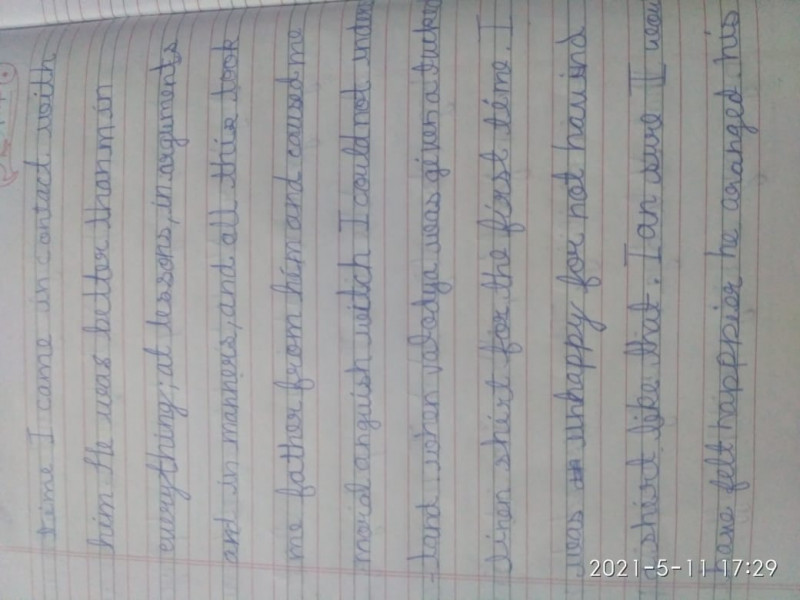 time I came in contact with
him He was better than min
everything; at lessons, in arguments
and in manners, and all this took
me father from him and caused me
moral anguish witch I could not under
-tand. when volodya was given a tucked
linen shirt for the first time. I
was unhappy for not having
a shirt like that. I an sure I woul
have felt happpier he aranged his
2021-5-11 17:29